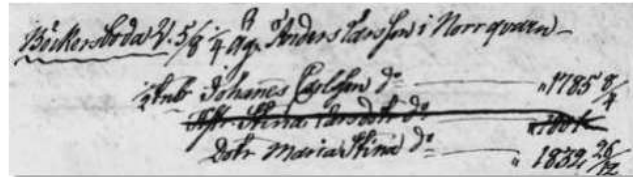 Böckersboda V. 5/8 1/4 Äg. Anders Larsson i Norrqvarn
1/2 Inb Johannes Carlsson do " 1785 8/4
Hstr Stina Larsdotr do
Dotr Maria Stina do " 1832 26/12